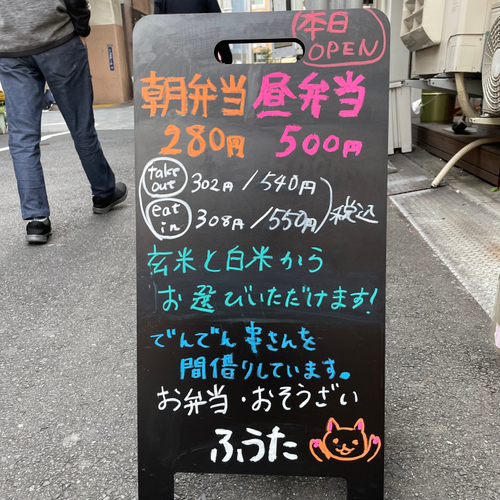 本日
OPEN
朝弁当 昼弁当
280円 500円
take out 302円 / 540円
eat in 308円 / 550円 税込
玄米と白米から
お選びいただけます!
でんでん串さんを
間借りしています。
お弁当・おそうざい
ふうた